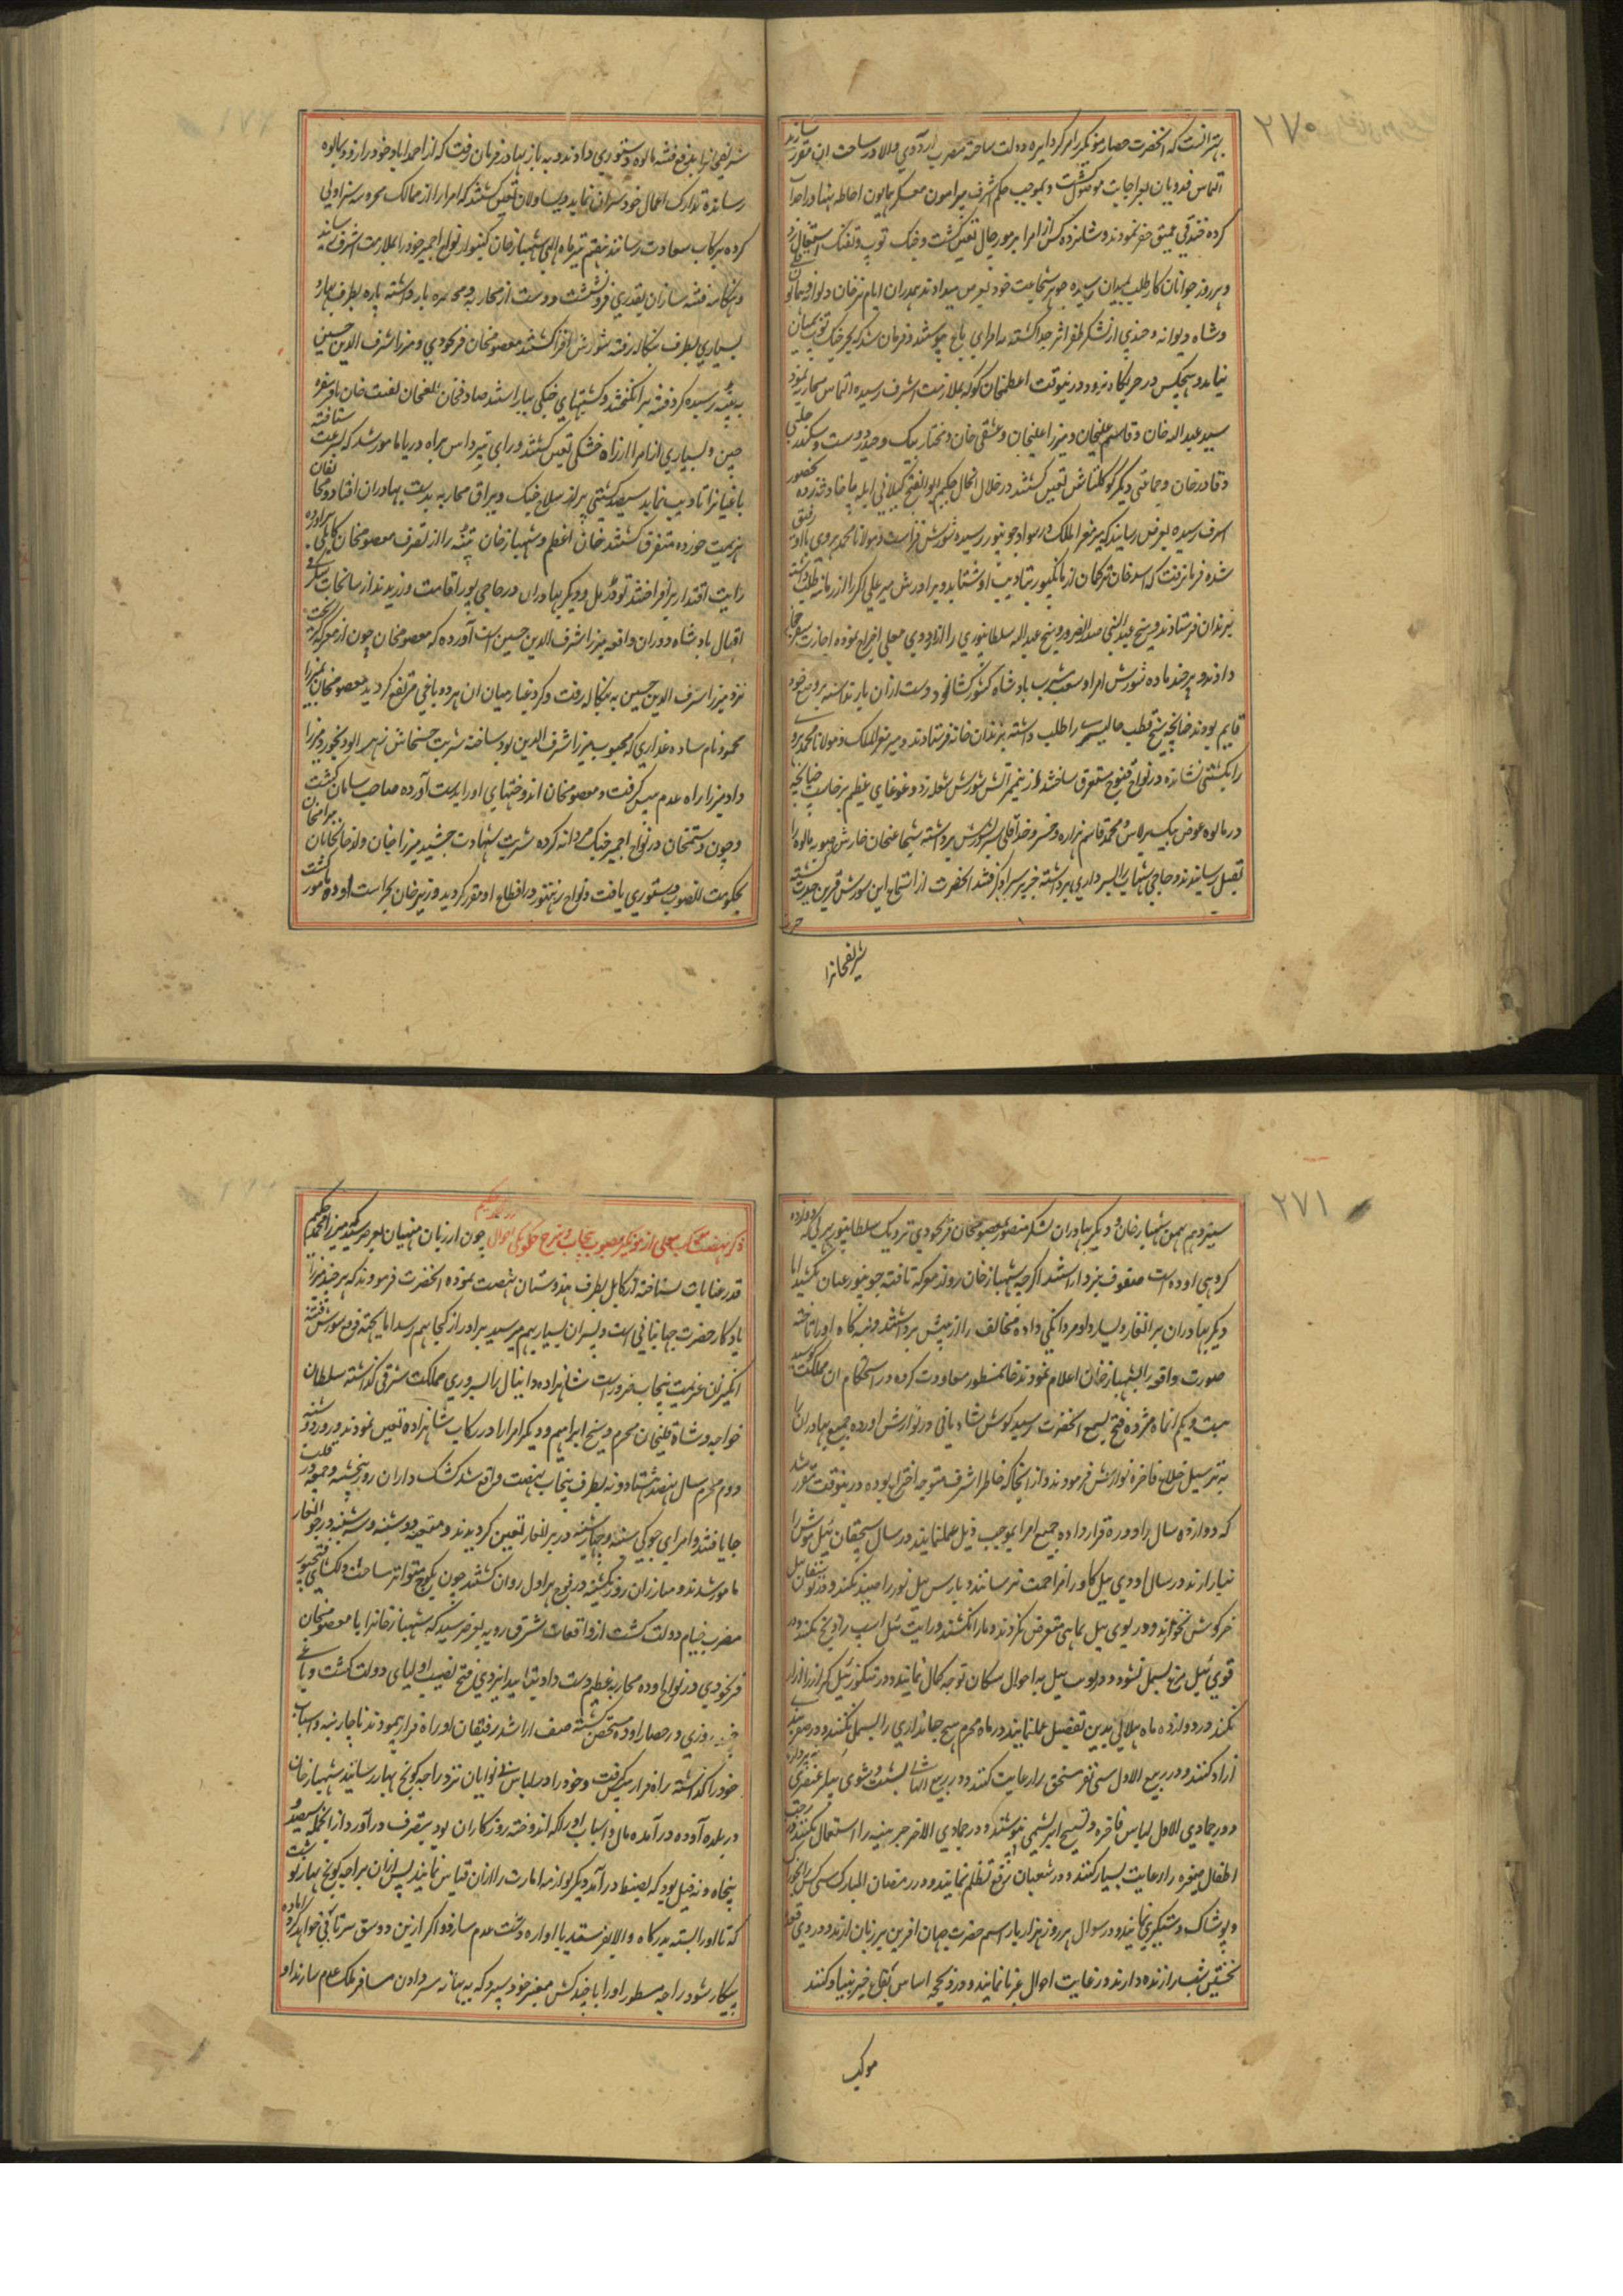 ۲۷۰
بهتر آنست که آنحضرت حصار مونگیر را مرکز دایره دولت ساخته مضرب اردوی والا در ساحت آن مقرر سازند
التماس فدویان بعز اجابت موصول گشت و بموجب حکم اشرف پیرامون معسکر همایون احاطه بنا و احداث
کرده خندقی عمیق حفر نمودند و شانزده کس از امرا بر مورچال تعین گشت و جنگ توپ و تفنگ اشتعال
و هر روز جوانان کار طلب بمیدان رسیده جوهر شجاعت خود بعرض میدادند همدران ایام ترخان دیوانه
و شاه دیوانه و چندی از لشکر ظفر اثر جدا گشته بامرای باغی پیوستند و فرمان شد که بجز جنگ توپ بمیان
نیاید و هیچکس در حربگاه نرود درینوقت اعظمخان کوکه بملازمت اشرف رسیده التماس محاربه نمود
سید عبدالله خان و قاسم علیخان و میرزا علیخان و عشقی خان و مختار بیک و حیدر دوست و سکندر
و قادر خان و جماعتی دیگر کوکلتاش تعین گشتند در خلال انحال حکیم ابوالفتح گیلانی
اشرف رسیده بعرض رسانید که میر معز الملک در سواد جونپور رسیده شورش افزاست و مولانا محمد یزدی با او رفیق
شده فرمان رفت که اسد خان ترکمان از مانکپور بتادیب او شتابد و برادرش میر علی اکبر را از زمانیه طلب داشته
بزندان فرستادند و شیخ عبدالنبی صدر الصدور و شیخ عبدالله سلطانپوری را از اردوی معلی اخراج نموده اجازت سفر حجاز
دادند و هر چند ماده شورش امرا وسعت مشرب پادشاه کشور گشا بود دوست از آن باز نداشته بر وضع خود
قایم بودند چنانچه شیخ قطب جالیسری را طلب داشته بزندان خانه فرستادند و میر معز الملک و مولانا محمد یزدی
را بکشتی نشانده در نواح قنوج مستغرق ساختند از ینمر آتش شورش شعله زد و غوغای عظیم برخاست چنانچه
در مالوه عوض بیک برلاس و محمد قاسم هزاره و خسرو خداقلی سر بشورش برداشته شجاعتخان حارس صوبه مالوه را
بقتل رسانیدند و حاجی شهاب را بسرداری برداشته چتر بر سر او افراشتند آنحضرت از استماع این شورش قرین حیرت گشته
شریفخانرا
شریفخانرا بدفع فتنه مالوه دستوری دادند و به باز بهادر فرمان رفت که از احمدآباد خود را زود بمالوه
رسانده تدارک اعمال خود سران نماید و یساولان تعین گشتند که امرا را از ممالک محروسه سزاولی
کرده برکاب سعادت رسانند هفتم تیر ماه الهی شهباز خان کنبو از نواح اجمیر خود را بملازمت اشرف رسانید
و هنگامه فتنه سازان بقدری فرو نشست و دست از محاربه و محاصره باز داشته پاره بطرف بهار و
بسیاری بطرف بنگاله رفته شورش افزا گشتند معصومخان فرنخودی و میرزا شرف الدین حسین
به پتنه رسیده گرد فتنه برانگیختند و کشتیهای جنگی بیاراستند صادقخان و الغخان
چین و بسیاری از امرا از راه خشکی تعین گشتند و رای پترداس براه دریا مامور شد که بسرعت شتافته
باغیانرا تادیب نماید سیصد کشتی پر از سلاح جنگ و یراق محاربه بدست بهادران افتاد و مخالفان
هزیمت خورده متفرق گشتند خان اعظم و شهباز خان پتنه را از تصرف معصومخان کابلی برآورده
رایت اقتدار برافراختند تودرمل و دیگر بهادران در حاجی پور اقامت ورزیدند از سانحات
اقبال پادشاه دوران واقعه میرزا شرف الدین حسین است آورده که معصومخان چون از معرکه گریخت
نزد میرزا شرف الدین حسین به بنگاله رفت و گرد غبار میان آن هر دو باغی مرتفع گردید معصومخان
محمود نام ساده عذاری که محبوب میرزا شرف الدین بود ساخته شربت خشخاش زهر آلود بخورد میرزا
داد میرزا راه عدم پیش گرفت و معصومخان اندوختهای او را بدست آورده صاحب سامان گشت
و چون دستمخان در نواح اجمیر جنگ مردانه کرده شربت شهادت چشید میرزا خان ولد خانخانان بیرامخان
بحکومت آنصوب دستوری یافت و نواح رنتنبور در اقطاع او مقرر گردید وزیر خان بحراست اوده مامور گشت
۲۷۱
سیزدهم بهمن شهباز خان و دیگر بهادران لشکر منصور معصومخان فرنخودی نزدیک سلطانپور
کروهی اوده است صفوف نبرد آراستند اگرچه شهباز خان رو از معرکه تافته جونپور عنان کشید اما
دیگر بهادران برانغار و یسار داد مردانگی داده مخالف را از پیش برداشتند و بنه گاه او را تاخته
صورت واقعه را بشهباز خان اعلام نمودند خان منظور معاودت کرده در استحکام آن مملکت کوشید
بیست و یکم آنماه مژده فتح بسمع آنحضرت رسید کوس شادیانی در نوازش آورده جمیع بهادران را
به ترسیل خلاع فاخره نوازش فرمودند و از آنجا که خاطر اشرف متوجه اختراع بوده درینوقت مقرر شد
که دوازده سال را دوره قرار داده جمیع امرا بموجب ذیل عمل نمایند در سال سیچقان ییل موش را
نیازارند در سال اودی ییل گاو را مزاحمت نرسانند و بارس ییل یوز را صید نکنند و در توشقان ییل
خرگوش نخورند و در لوی ییل ماهی متعرض نگردند و مار را نکشند و رایت ییل اسپ را ذبح نکنند و در
قوی ییل بز بسمل نشود و در
نکنند در دوازده ماه هلالی بدین تفصیل عمل نمایند در ماه محرم هیچ جانداری را بسمل نکنند و در صفر بنده
آزاد کنند و در ربیع الاول سی نفر مستحق را رعایت کنند و در ربیع الثانی بشست و شوی پیکر عنصری
و در جمادی الاول لباس فاخره و نسیج ابریشمی نپوشند و در جمادی الاخر چرمینه را استعمال نکنند و در رجب
اطفال صغیره را رعایت بسیار کنند و در شعبان
و پوشاک دستگیری نمایند و در شوال هر روز هزار بار اسم حضرت جهان آفرین بر زبان آرند و در ذی قعده
نخستین شب را زنده دارند و رعایت احوال غربا نمایند و در ذیحجه اساس بقاع خیر بنیاد کنند
موکب
ذکر نهضت موکب معلی از مونگیر بصوب پنجاب و شرح چگونگی احوال میرزا محمد حکیم چون از زبان منهیان بعرض رسید که میرزا محمد حکیم
قدر عنایات نشناخته از کابل بطرف هندوستان نهضت نموده آنحضرت فرمودند که هر چند میرزا
یادگار حضرت جهانبانی است و پسران بسیار بهم میرسد برادر از کجا بهم رسد اما بجهت دفع شورش فتنه
انگیزان عزیمت پنجاب ضرور است شاهزاده دانیال را بسروری مملکت شرقی گذاشته سلطان
خواجه و شاه قلیخان محرم و شیخ ابراهیم و دیگر امرا را در رکاب شاهزاده تعین نمودند و روز دوشنبه
دوم محرم سال نهصد و هشتاد و نه بطرف پنجاب نهضت واقع شد کشک داران روز پنجشنبه و جمعه در قلب
جا یافتند و امرای چوکی شنبه و چهارشنبه در برانغار تعین گردیدند و متعینه دوشنبه و سه شنبه در جوانغار
مامور شدند و مبارزان روز یکشنبه در فوج هراول روان گشتند چون بکوچ متواتر ساحت دلکشای فتحپور
مضرب خیام دولت گشت از واقعات شرق رویه بعرض رسید که شهباز خانرا با معصومخان
فرنخودی در نواح اوده محاربه عظیم دست داد بتائید ایزدی فتح نصیب اولیای دولت گشت و باغی
چند روزی در حصار اوده متحصن گشته صف آرا شد رفیقان او راه فرار پیمودند ناچار بنه و اسباب
خود را گذاشته راه فرار پیش گرفت و خود را در لباس بی نوایان نزد راجه کونج بهار رسانید شهباز خان
در بلده آوده در آمده مال و اسباب او را که اندوخته روزگاران بود بتصرف در آورد از آنجمله سیصد و
پنجاه و نه فیل بود که بضبط در آمد دیگر لوازمه امارت را از آن قیاس نمایند پس از آن براجه کونج بهار نوشت
که تا او را بسته بدرگاه والا بفرستد یا اواره دشت عدم سازد و اگر ازین دو شق سرتابی خواهد کرد آماده
پیکار شود راجه مسطور او را با چند کس معتبر خود سپرد که به بهانه سر دادن مسافر ملک عدم سازند او